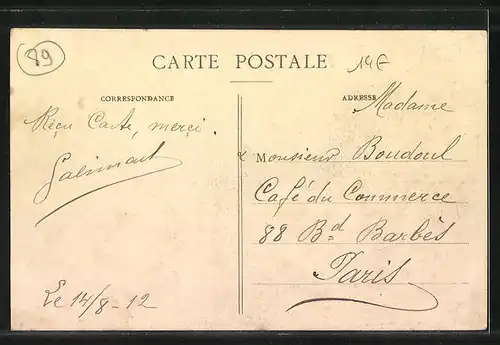 89
CARTE POSTALE
14E
CORRESPONDANCE
Reçu Carte, merci.
Galimart
Le 14/8-12
ADRESSE
Madame
& Monsieur Boudoul
Café du Commerce
88 Bd Barbès
Paris